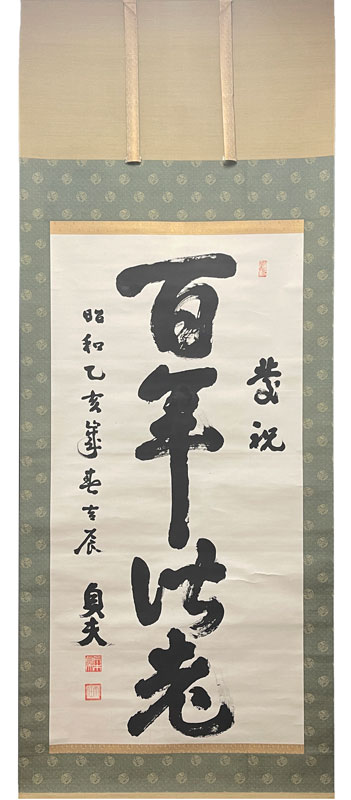 祝
百年偕老
昭和乙亥歳春吉辰 貞夫